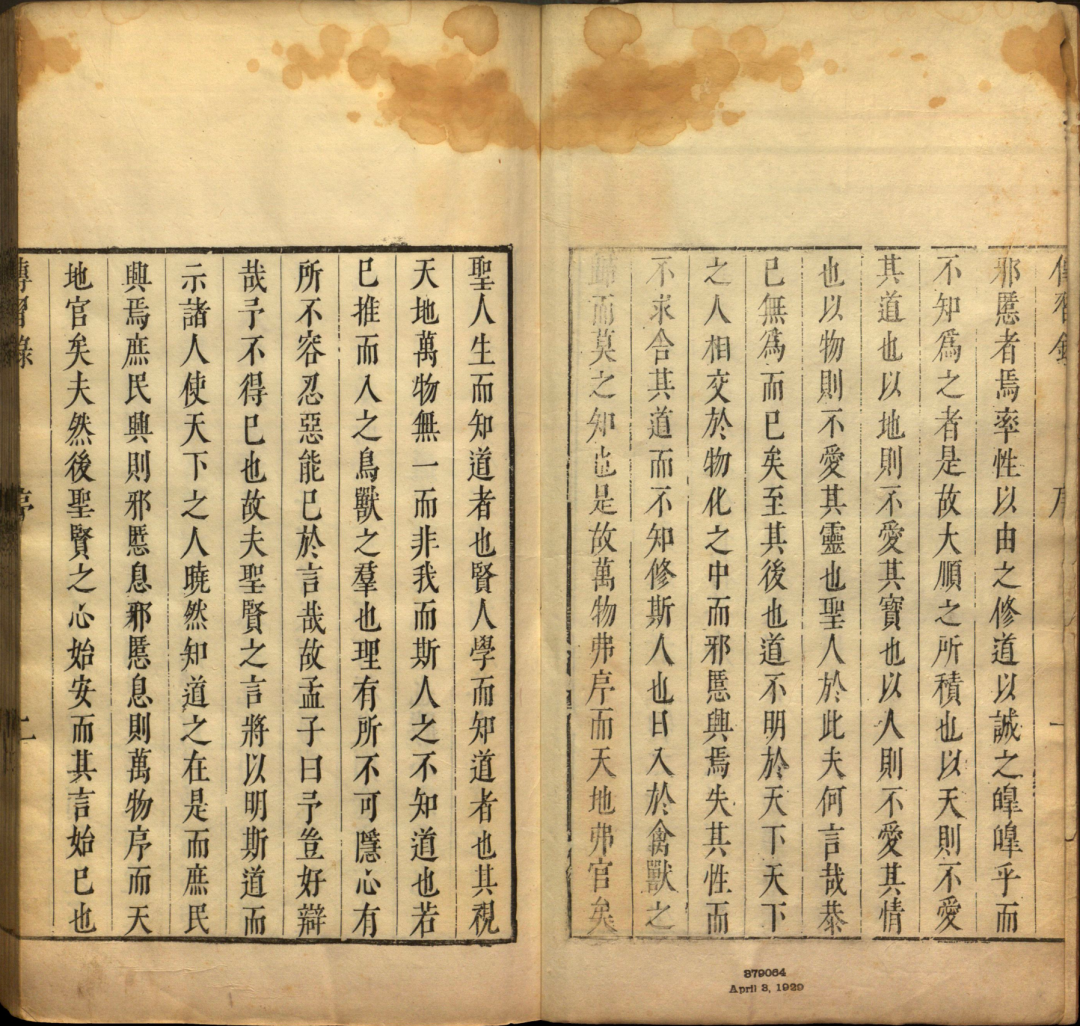 邪慝者焉率性以由之修道以誠之皥皥乎而
不知爲之者是故大順之所積也以天則不愛
其道也以地則不愛其寶也以人則不愛其情
也以物則不愛其靈也聖人於此夫何言哉恭
已無爲而已矣至其後也道不明於天下天下
之人相交於物化之中而邪慝興焉失其性而
不求合其道而不知修斯人也日入於禽獸之
歸而莫之知也是故萬物弗序而天地弗官矣
聖人生而知道者也賢人學而知道者也其視
天地萬物無一而非我而斯人之不知道也若
已推而入之鳥獸之羣也理有所不可隱心有
所不容忍惡能已於言哉故孟子曰予豈好辯
哉予不得已也故夫聖賢之言將以明斯道而
示諸人使天下之人曉然知道之在是而庶民
興焉庶民興則邪慝息邪慝息則萬物序而天
地官矣夫然後聖賢之心始安而其言始已也
傳習錄 序
379064
April 3, 1929